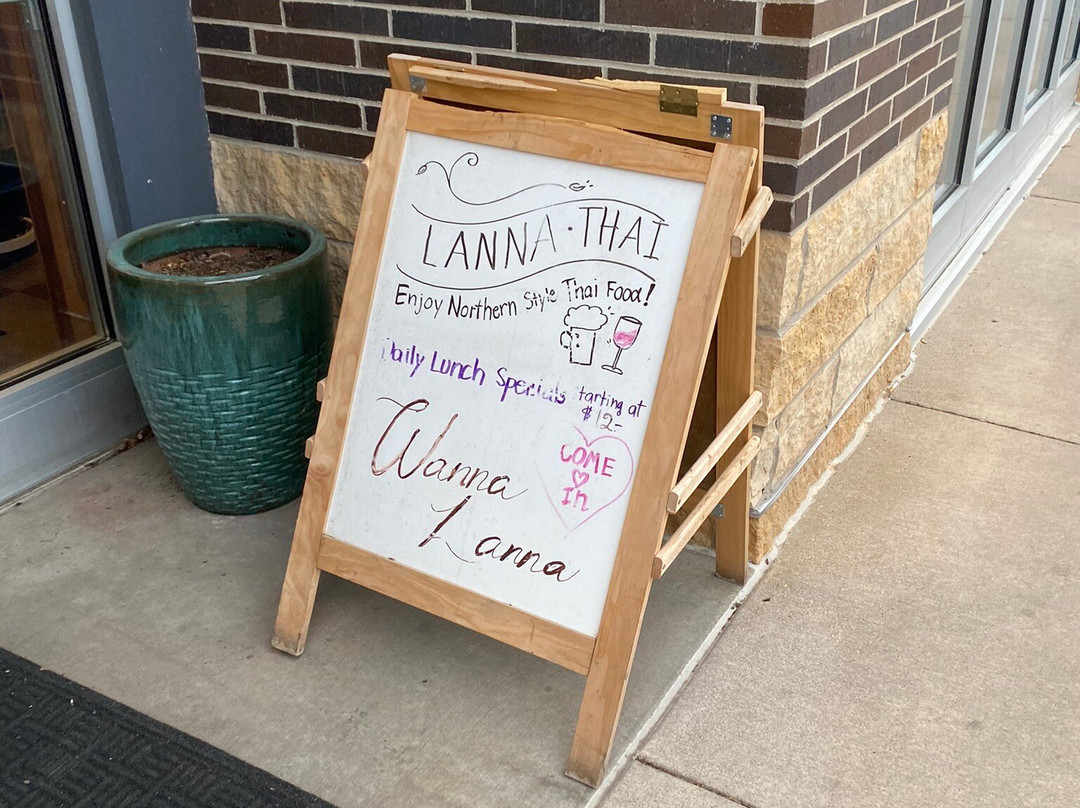 LANNA · THAI
Enjoy Northern Style Thai Food!
Daily Lunch Specials starting at
$12-
COME
In
Wanna
Lanna